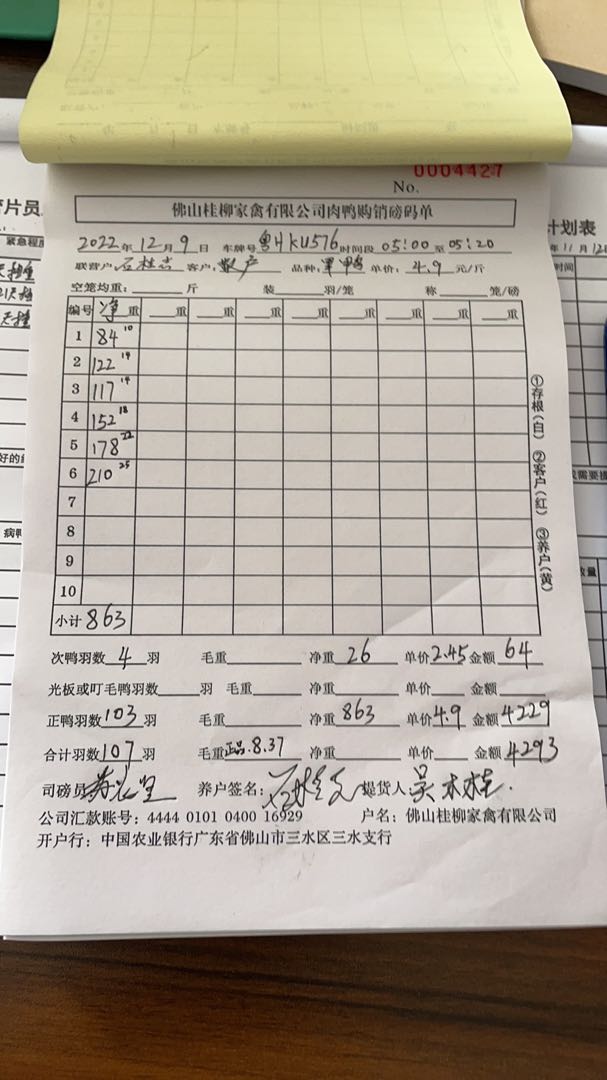 0004427
No.
佛山桂柳家禽有限公司肉鸭购销磅码单
2022年12月9日 车牌号粤HKU576时间段05:00至05:20
联营户:石桂志 客户:散户 品种:单鸭 单价:4.9元/斤
空笼均重:____斤 装____羽/笼 称____笼/磅
编号 净重 __重 __重 __重 __重 __重 __重 __重 __重
1 84 10
2 122 14
3 117 14
4 152 18
5 178 22
6 210 25
7
8
9
10
小计 863
①存根(白) ②客户(红) ③养户(黄)
次鸭羽数4羽 毛重____ 净重26 单价2.45金额64
光板或叮毛鸭羽数____羽 毛重____ 净重____ 单价____ 金额____
正鸭羽数103羽 毛重____ 净重863 单价4.9 金额4229
合计羽数107羽 毛重正品.8.37 净重____ 单价____ 金额4293
司磅员 养户签名: 提货人:吴木桂
公司汇款账号: 4444 0101 0400 16929 户名: 佛山桂柳家禽有限公司
开户行: 中国农业银行广东省佛山市三水区三水支行
片员
紧急程度
好的
病鸭
计划表
年11月12
时间
需要
数量